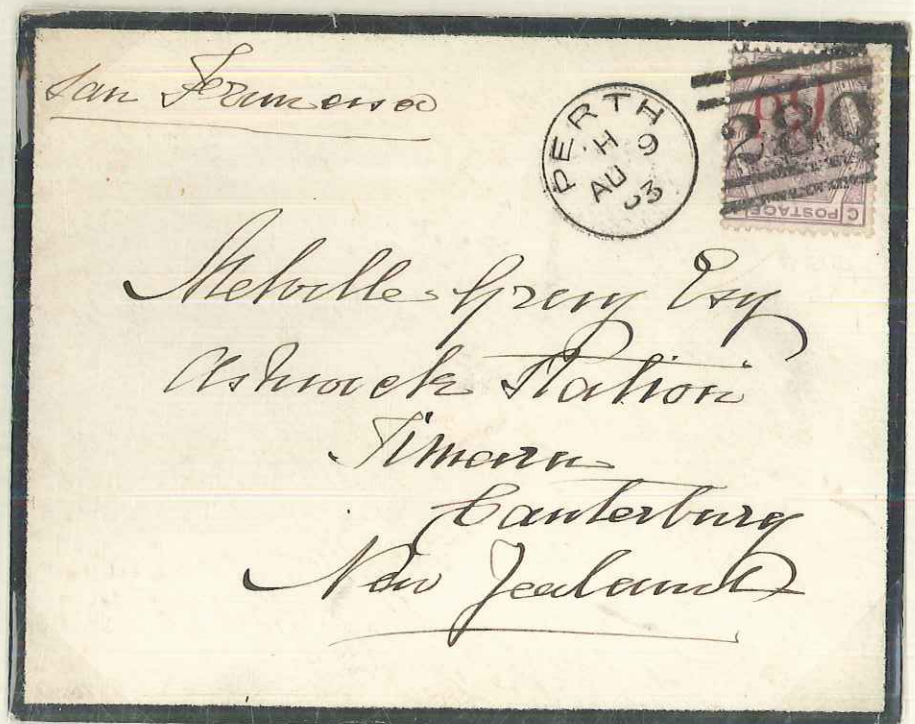 San Francisco
PERTH
H 9
AU
83
6d
280
C POSTAGE
Melville Gray Esq
Ashwick Station
Timaru
Canterbury
New Zealand